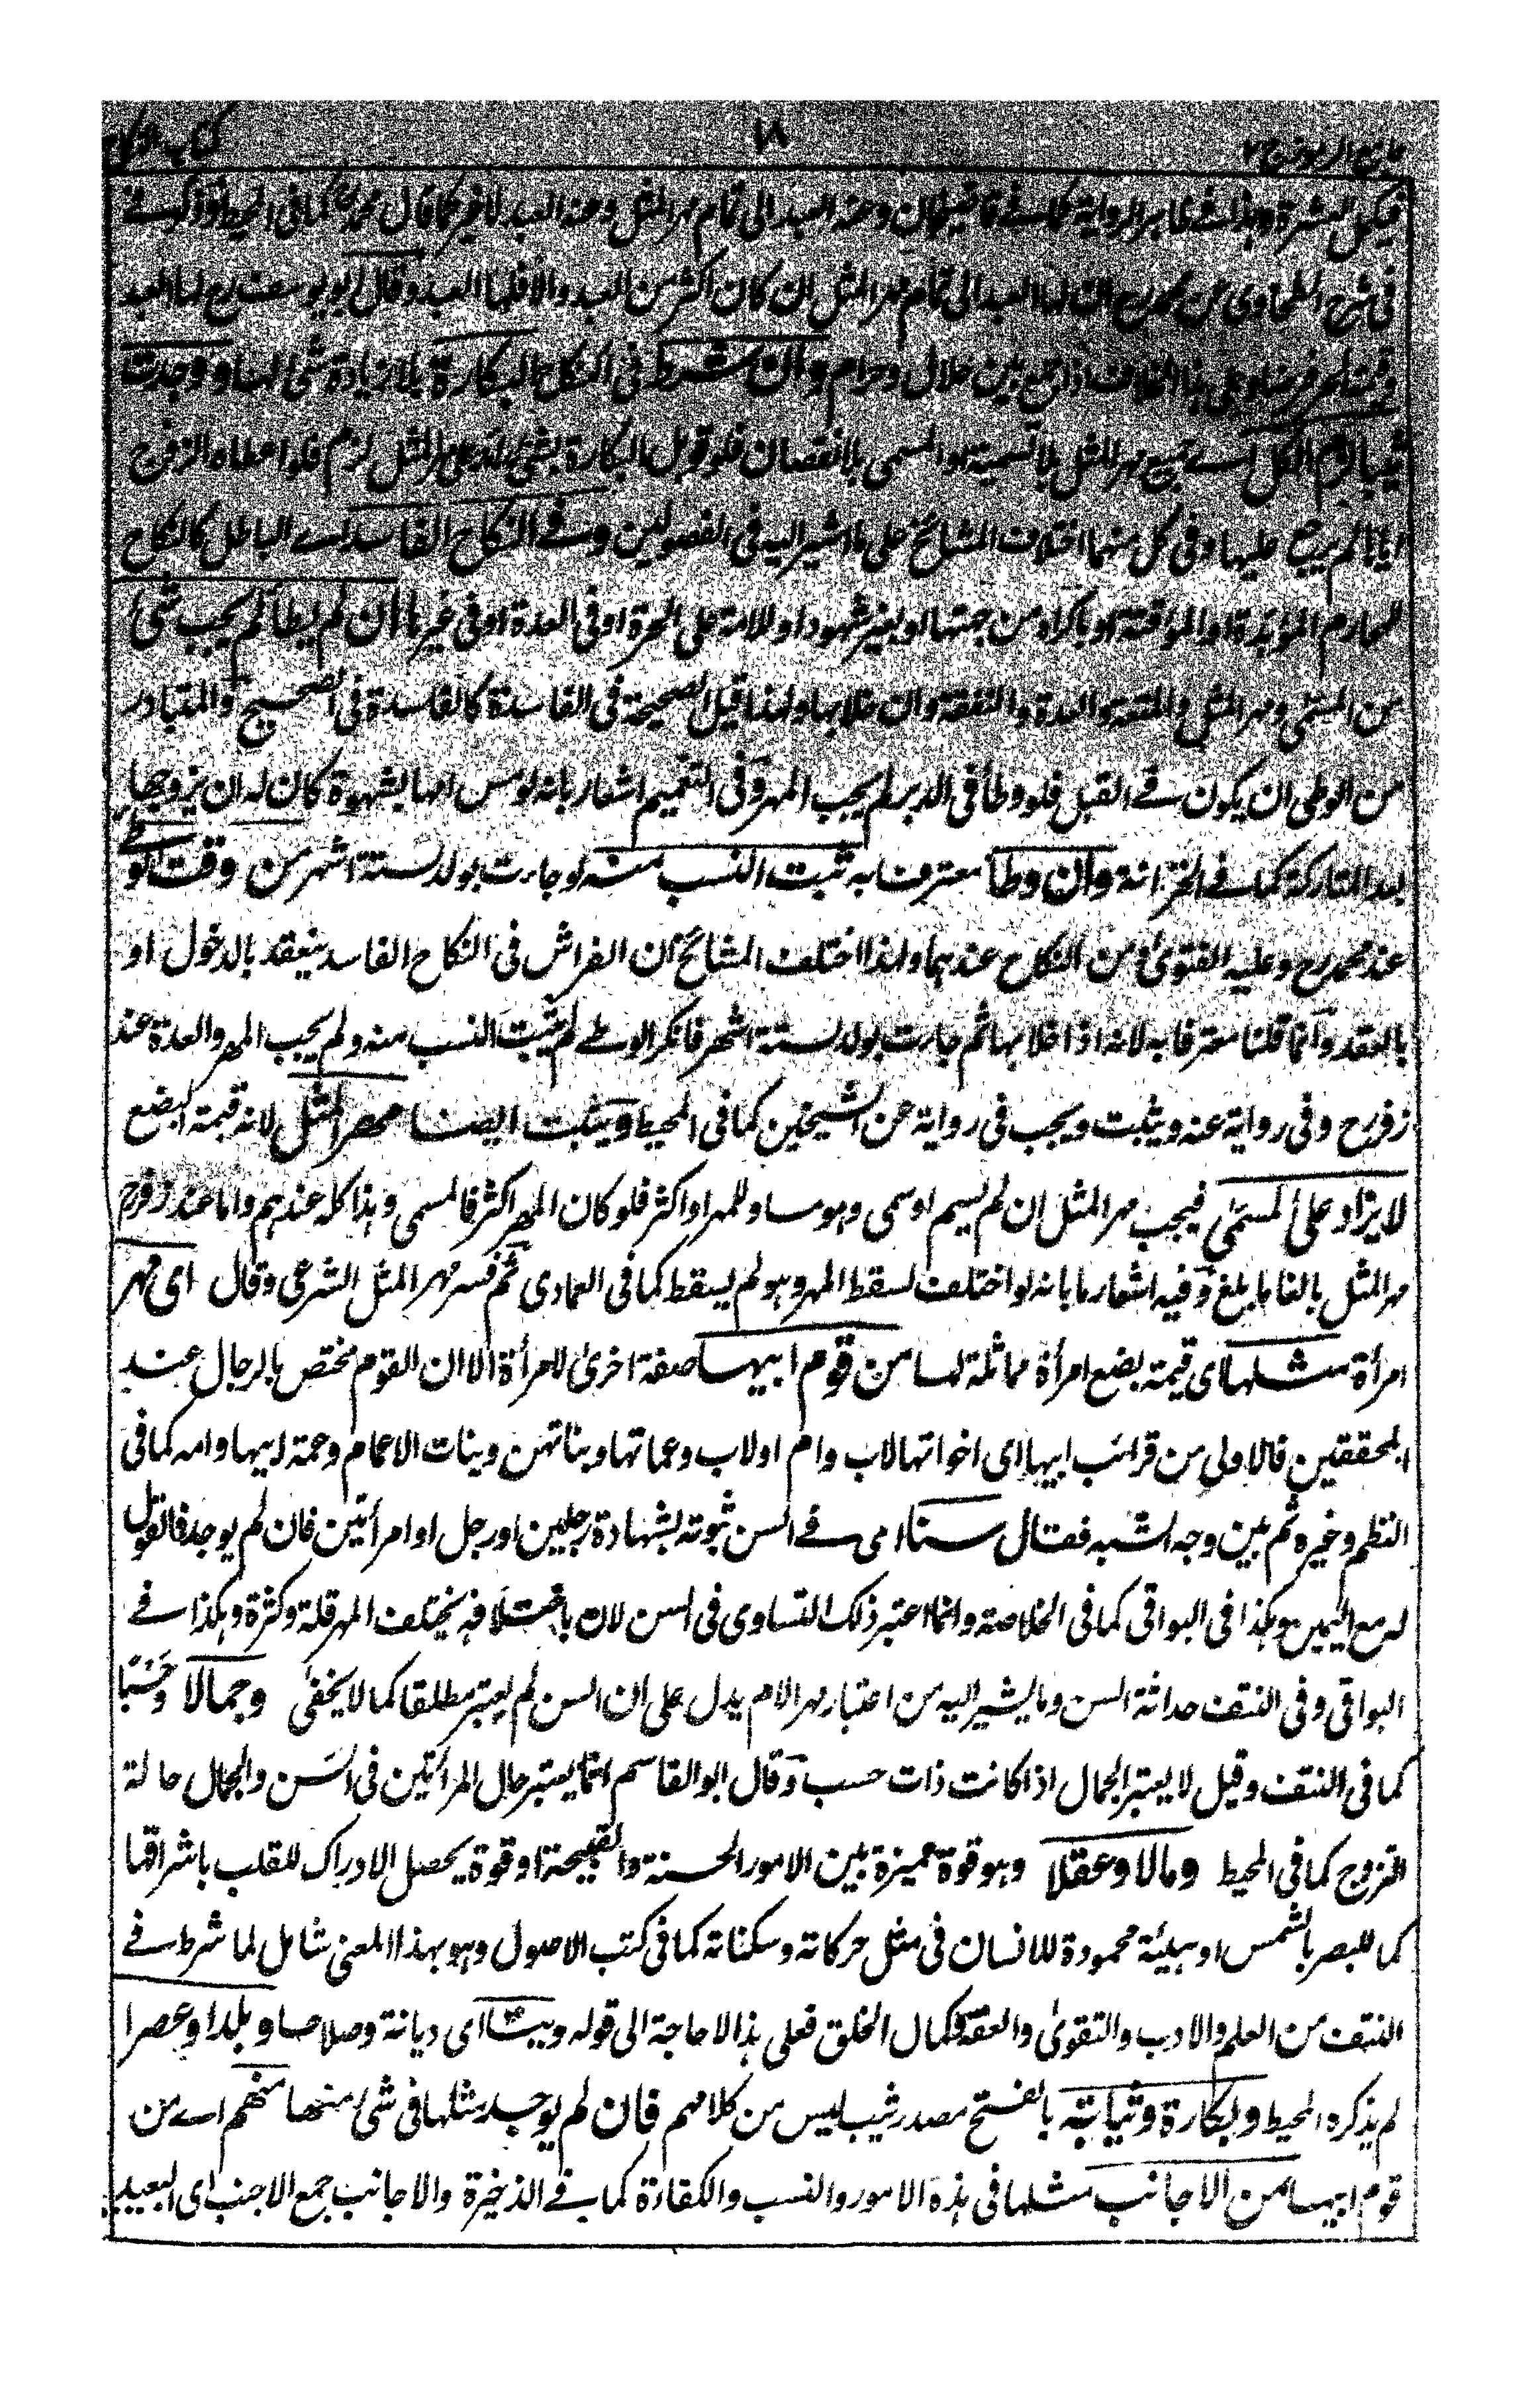 جامع الرموز ج ٢ ١٨ كتاب النكاح
فيكمل العشرة وهذا في ظاهر الرواية كما في قاضيخان وعنه العبد الى تمام مهر المثل وعنه العبد لا غير كما قال محمد رح كما في المحيط
في شرح الطحاوى عن محمد رح ان لها العبد الى تمام مهر المثل ان كان اكثر من العبد والا فلها العبد وقال ابو يوسف رح لها العبد
وعلى هذا الخلاف اذا جمع بين حلال وحرام وان شرط فى النكاح البكارة بلا زيادة شئ لها ووجدت
ثيبا لزم الكل اے جميع مهر المثل بلا تسمية او المسمى بلا نقصان فلو قوبل البكارة بشئ زائد على مهر المثل لزم فلو اعطاه الزوج
اياها لم يرجع عليها وفى كل منهما اختلاف المشائخ على ما اشير اليه فى الفصولين وفے النكاح الفاسد اے الباطل كالنكاح
للمحارم المؤبدة او المؤقتة او باكراه من جهتها او بغير شهود او للامة على الحرة او فى العدة او فى غيرها ان لم يطأ لم يجب شئ
من المسمى ومهر المثل والمتعة والعدة والنفقة وان خلا بها ولهذا قيل الصحيحة فى الفاسدة كالفاسدة فى الصحيح والمتبادر
من الوطى ان يكون فے القبل فلو وطأ فى الدبر لم يجب المهر وفى التعميم اشعار بانه لو مس امها بشهوة كان له ان يزوجها
بعد المتاركة كما فے الخزانة وان وطأ معترفا به ثبت النسب منه لو جاءت بولد لستة اشهر من وقت الوطے
عند محمد رح وعليه الفتوى ومن النكاح عندهما ولذا اختلف المشائخ ان الفراش فى النكاح الفاسد ينعقد بالدخول او
بالعقد وانما قلنا معترفا به لانه اذا خلا بها ثم جاءت بولد لستة اشهر فانكر الوطے لم يثبت النسب منه ولم يجب المهر والعدة عند
زفر رح وفى رواية عنه ويثبت ويجب فى رواية عن الشيخين كما فى المحيط ويثبت ايضا مهر المثل لانه قيمة البضع
لا يزاد على المسمّى فيجب مهر المثل ان لم يسم او سمى وهو مساو للمهر او اكثر فلو كان المهر اكثر فالمسمى وهذا كله عندهم واما عند زفر رح
مهر المثل بالغا ما بلغ وفيه اشعار ما بانه لو اختلف لسقط المهر وهو لم يسقط كما فى العمادى ثم فسر مهر المثل الشرعى وقال اى مهر
امرأة مثلها اى قيمة بضع امرأة مماثلة لها من قوم ابيها صفة اخرى لامرأة الا ان القوم مختص بالرجال عند
المحققين فالاولى من قرائب ابيها اى اخواتها لاب وام او لاب وعماتها وبناتهن وبنات الاعمام وعمة لابيها وامه كما فى
النظم وغيره ثم بين وجه الشبه فقال سنا اى فے السن ثبوته بشهادة رجلين او رجل او امرأتين فان لم يوجد فالقول
له مع اليمين وهكذا فى البواقى كما فى الخلاصة وانما اعتبر ذلك التساوى فى السن لان باختلافه يختلف المهر قلة وكثرة وهكذا فے
البواقى وفى النتف حداثة السن وما يشير اليه من اعتبار مهر الام يدل على ان السن لم يعتبر مطلقا كما لا يخفى وجمالا وحَسَبًا
كما فى النتف وقيل لا يعتبر الجمال اذا كانت ذات حسب وقال ابو القاسم انما يعتبر حال المرأتين فى السن والجمال حالة
التزوج كما فى المحيط ومالا وعقلا وهو قوة مميزة بين الامور الحسنة والقبيحة او قوة يحصل الادراك للقلب باشراقها
كما للبصر بالشمس او هيئة محمودة للانسان فى مثل حركاته وسكناته كما فى كتب الاصول وهو بهذا المعنى شامل لما شرط فے
النتف من العلم والادب والتقوى والعفة وكمال الخلق فعلى هذا لا حاجة الى قوله ودينا اى ديانة وصلاحا وبلدا وعصرا
لم يذكره المحيط وبكارة وثيابة بالفتح مصدر ثيب ليس من كلامهم فان لم يوجد مثلها فى شئ منها منهم اے من
قوم ابيها من الاجانب مثلها فى هذه الامور والنسب والكفاءة كما فے الذخيرة والاجانب جمع الاجنب اى البعيد